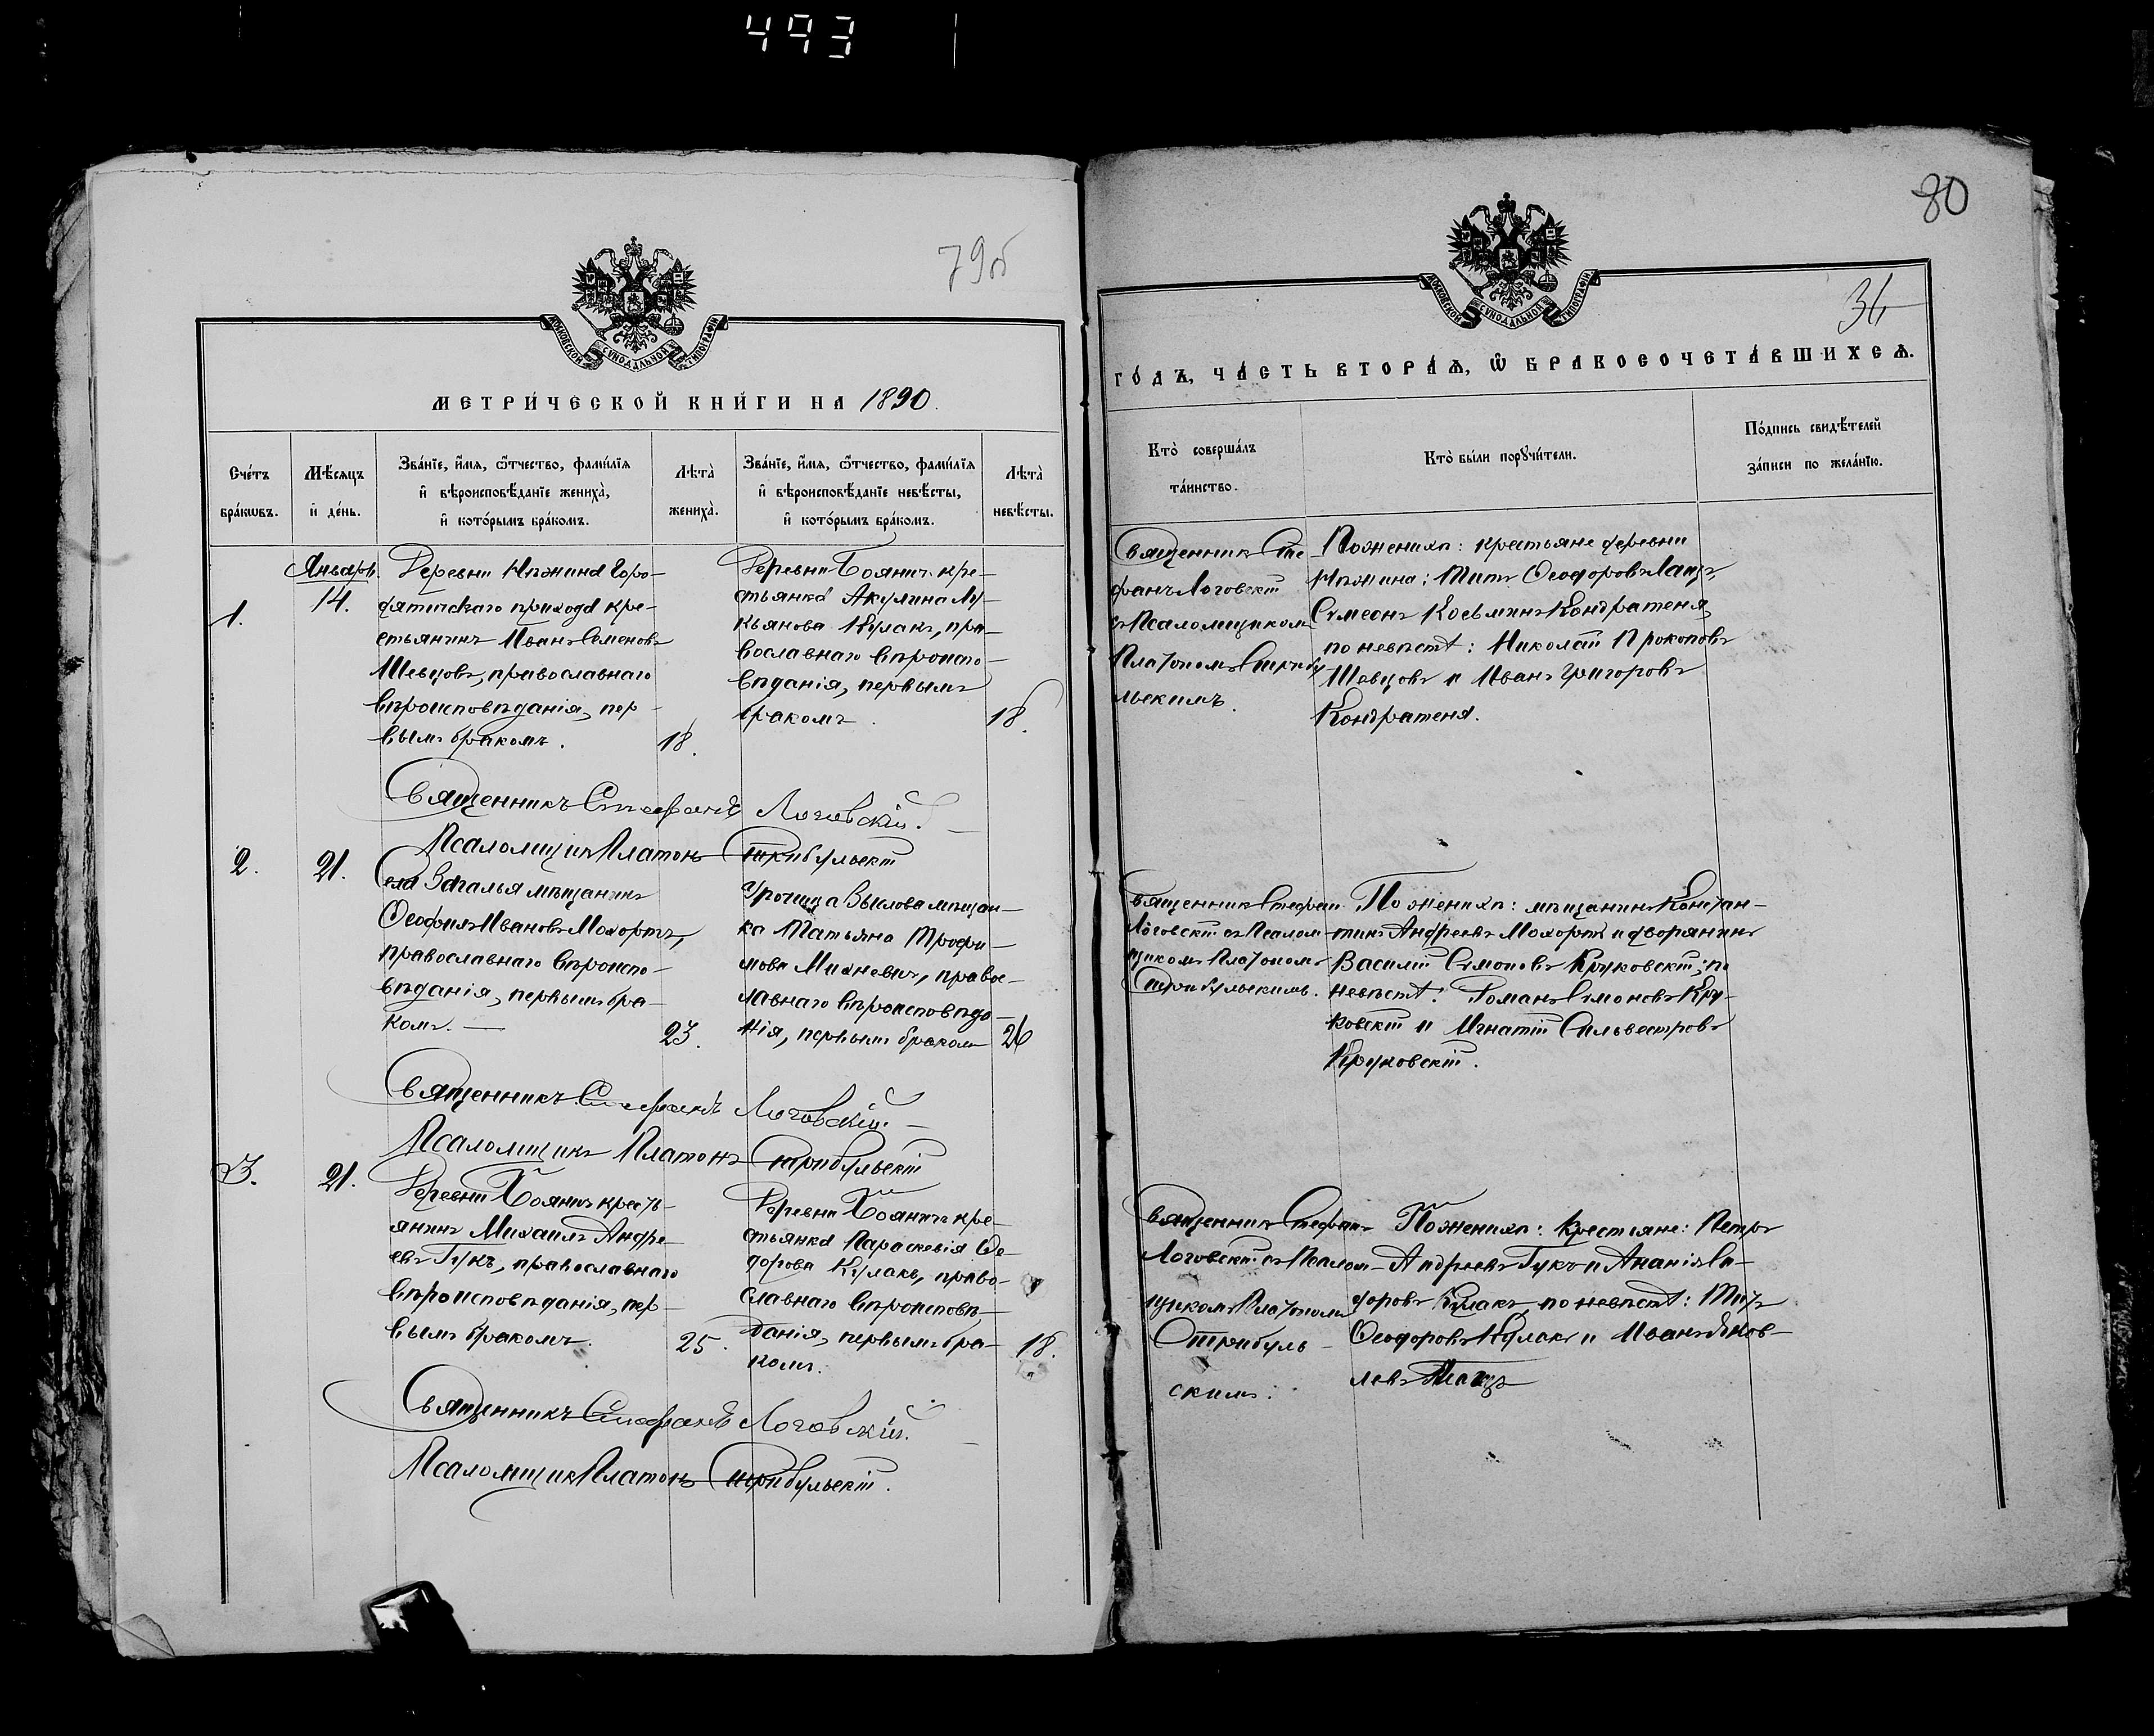 493
79об
МОСКОВСКОЙ СѴНОДАЛЬНОЙ ТИПОГРАФІИ
МЕТРИ́ЧЕСКОЙ КНИ́ГИ НА 1890.
Сче́тъ бра́кωвъ.
Мѣ́сяцъ и҆ де́нь.
Зва́нїе, и҆́мя, ѻ҆́тчество, фами́лїя
и҆ вѣроисповѣ́данїе жениха̀,
и҆ кото́рымъ бра́комъ.
Лѣта̀ жениха̀.
Зва́нїе, и҆́мя, ѻ҆́тчество, фами́лїя
и҆ вѣроисповѣ́данїе невѣ́сты,
и҆ кото́рымъ бра́комъ.
Лѣта̀ невѣ́сты.
1.
Январь.
14.
Деревни
прихода кре-
стьянинъ Иванъ Семеновъ
Шевцовъ, православнаго
вѣроисповѣданія, пер-
вымъ бракомъ.
18.
Деревни Боянич кре-
стьянка Акулина Лу-
кьянова Кулакъ, пра-
вославнаго вѣроиспо-
вѣданія, первымъ
бракомъ.
18.
Священникъ Стефанъ Логовскій.
Псаломщикъ Платонъ Стрибульскій
2.
21.
Села мѣщанинъ
Ѳеофилъ Ивановъ Мохортъ,
православнаго вѣроиспо-
вѣданія, первымъ бра-
комъ.
23.
Урочища мѣщан-
ка Татьяна Трофи-
мова Михневич, правос-
лавнаго вѣроисповѣда-
нія, первымъ бракомъ
26
Священникъ Стефанъ Логовскій.
Псаломщикъ Платонъ Стрибульскій
3.
21.
Деревни Боянич крест-
янинъ Михаилъ Андре-
евъ Гукъ, православнаго
вѣроисповѣданія, пер-
вымъ бракомъ.
25.
Деревни Боянич кре-
стьянка Параскевія Ѳе-
дорова Кулакъ, право-
славнаго вѣроисповѣ-
данія, первымъ бра-
комъ.
18.
Священникъ Стефанъ Логовскій.
Псаломщикъ Платонъ Стрибульскій.
80
34
МОСКОВСКОЙ СѴНОДАЛЬНОЙ ТИПОГРАФІИ
ГО́ДЪ, ЧА́СТЬ ВТОРА́Я, Ѽ БРАКОСОЧЕТА́ВШИХСЯ.
Кто̀ соверша́лъ
та́инство.
Кто̀ бы́ли порꙋчи́тели.
По́дпись свидѣ́телей
за́писи по жела́нїю.
Священникъ Сте-
фанъ Логовскій
съ Псаломщикомъ
Платономъ Стрибу-
льскимъ.
По женихѣ: крестьяне деревни
Титъ Ѳеодоровъ
Сѵмеонъ Косьминъ Кондратеня,
по невѣстѣ: Николай Прокоповъ
Шевцовъ и Иванъ Григоровъ
Кондратеня.
Священникъ Стефан
Логовскій съ Псалом-
щикомъ Платономъ
Стрибульскимъ.
По женихѣ: мѣщанинъ Констан-
тинъ Андреевъ Мохортъ и дворянинъ
Василій Сѵмоновъ Круковскій; по
невѣстѣ: Романъ Сѵмоновъ Кру-
ковскій и Игнатій Сильвестровъ
Круковскій.
Священникъ Стефанъ
Логовскій съ Псалом-
щикомъ Платономъ
Стрибуль-
скимъ.
По женихѣ: Крестьяне: Петръ
Андреевъ Гукъ и Ананія Ѳе-
доровъ Кулакъ, по невѣстѣ: Титъ
Ѳеодоровъ Кулакъ и Иванъ